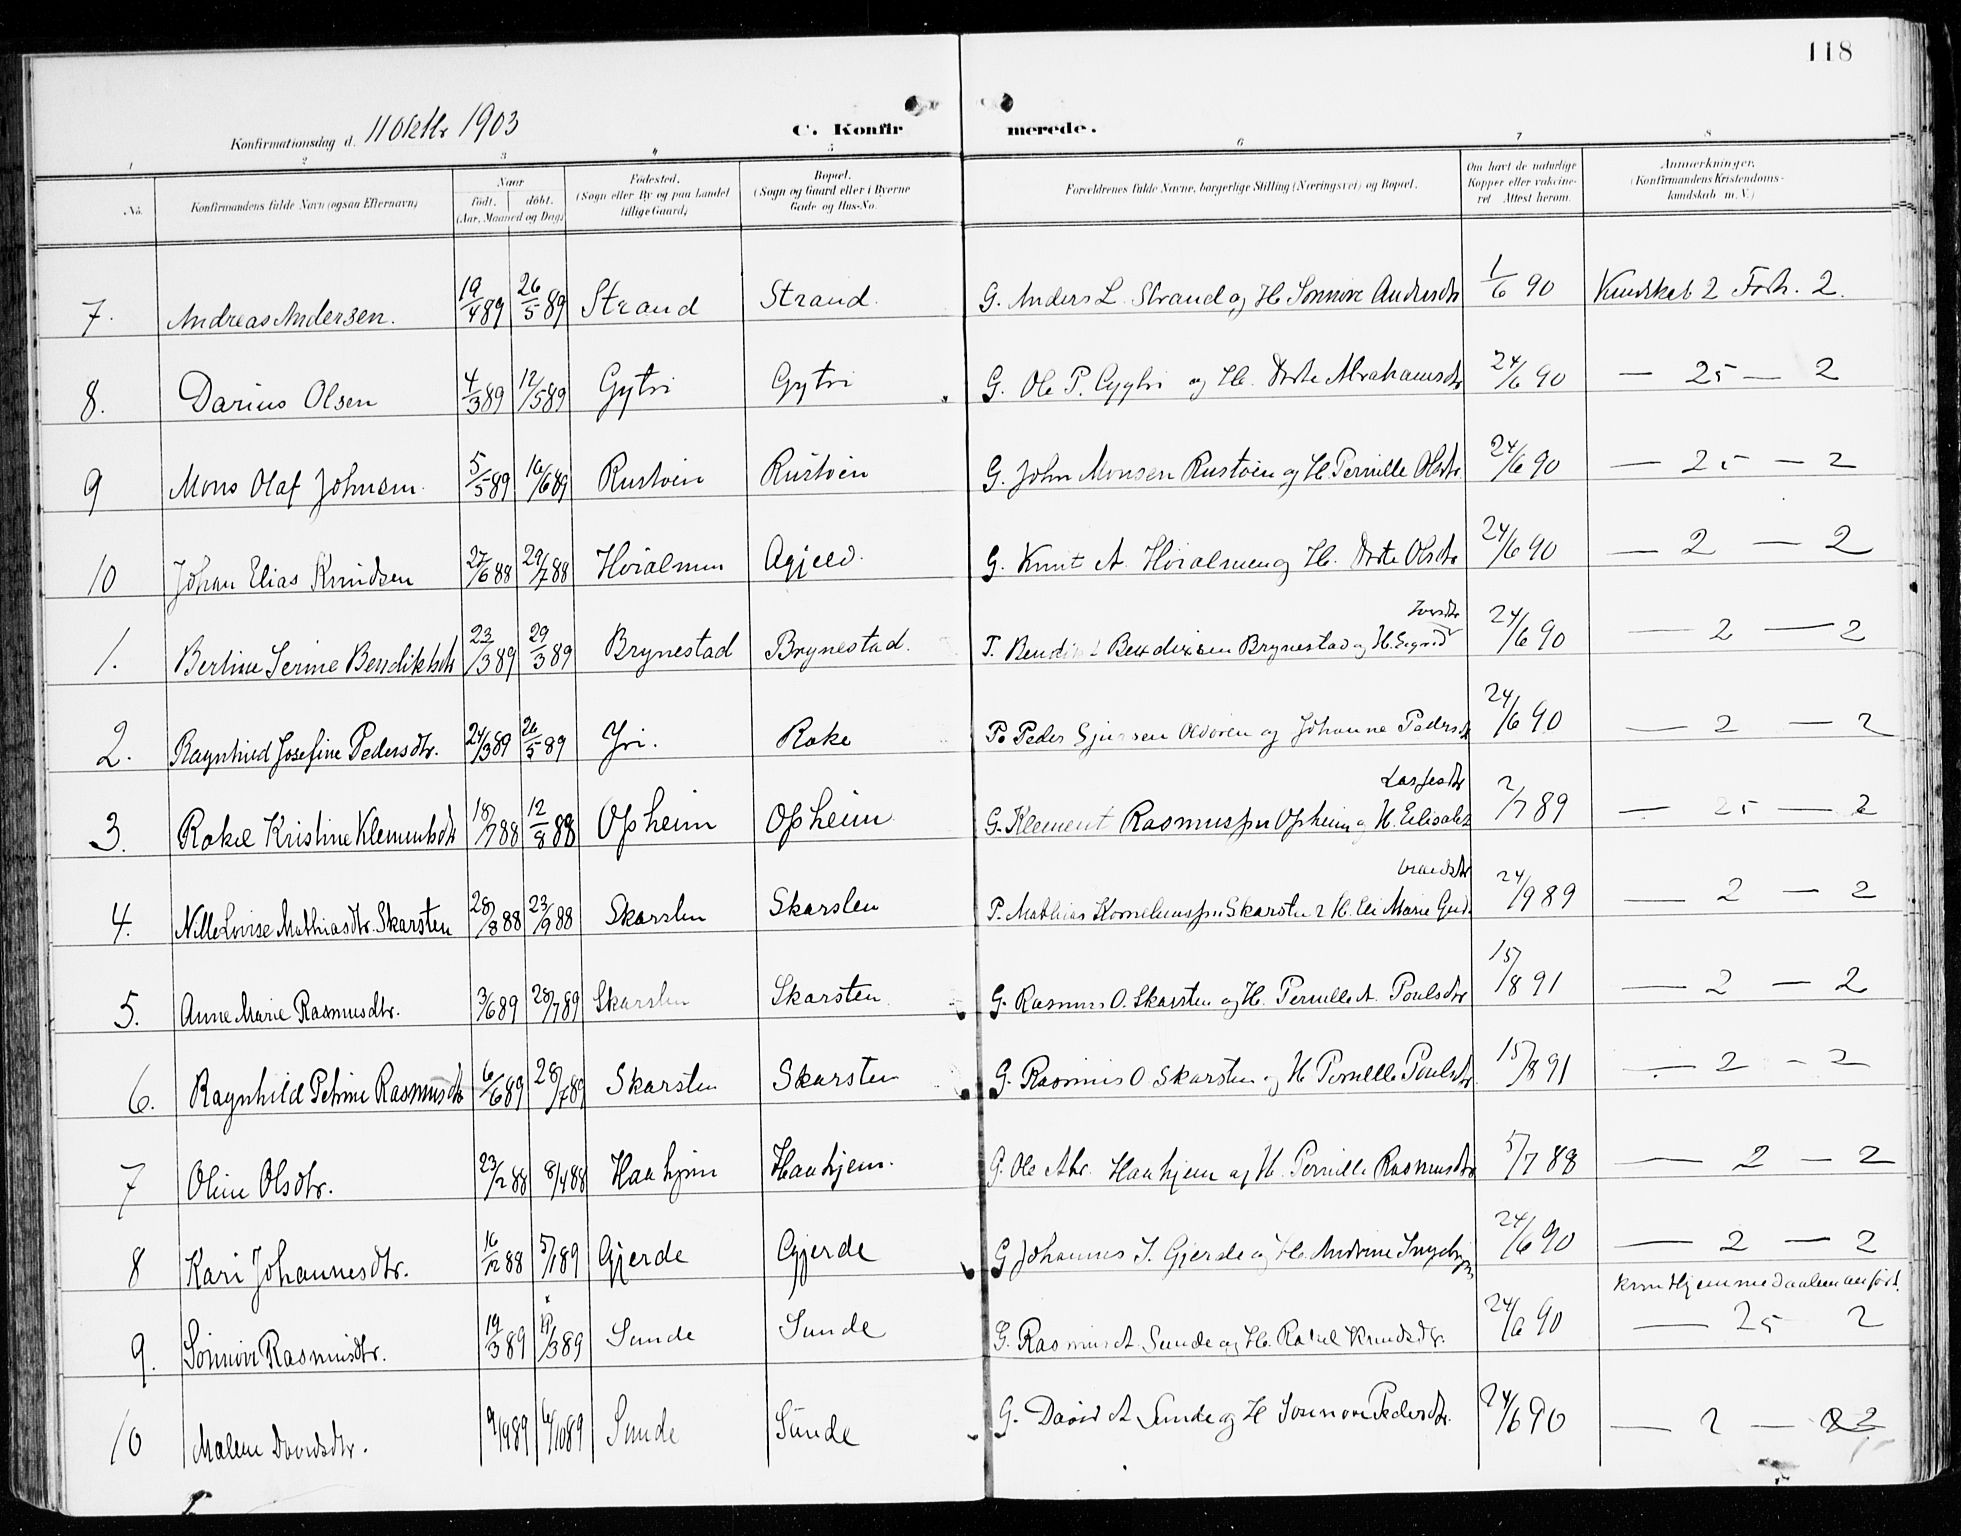 118
Konfirmationsdag d. 11 Oktbr 1903 C. Konfirmerede.
1 2 3 4 5 6 7 8
No. Konfirmandens fulde Navn (ogsaa Efternavn) Naar født. døbt. (Aar, Maaned og Dag) Fødested. (Sogn eller By og paa Landet tillige Gaard) Bopæl. (Sogn og Gaard eller i Byerne Gade og Hus-No. Forældrenes fulde Navne, borgerlige Stilling (Næringsvei) og Bopæl. Om havt de naturlige Kopper eller vaccineret. Attest herom. Anmærkninger. (Konfirmandens Kristendomskundskab m. V.)
7. Andreas Andersen. 19/4 89 26/5 89 Strand Strand. G. Anders L. Strand og H. Sønnøve Andersdtr 1/6 90 Kundskab 2 Forh. 2.
8. Darius Olsen 4/3 89 12/5 89 Gytri Gytri G. Ole P. Gytri og H. Dorte Abrahamsdtr 24/6 90 — 25 — 2
9 Mons Olaf Johnsen 5/5 89 16/6 89 Rustøen Rustøen G. John Monsen Rustøen og H. Pernille Olsdtr. 24/6 90 — 25 — 2
10 Johan Elias Knudsen 27/6 88 29/7 88 Høialmen Agjeld. G. Knut A. Høialmen og H. Dorte Olsdtr 24/6 90 — 2 — 2
1. Bertine Serine Bendiktsdtr 23/3 89 29/3 89 Brynestad Brynestad. Bendixsen Brynestad og H. Sigrid Iversdtr 24/6 90 — 2 — 2
2. Ragnhild Josefine Pedersdtr. 24/3 89 26/5 89 Yri. Rake P. Peder Oldøren og Johanne Pedersdtr 24/6 90 — 2 — 2
3. Rakel Kristine Klementsdtr 18/7 88 12/8 88 Opheim Opheim G. Klement Rasmussen Opheim og H. Elisabet Lassesdtr 2/7 89 — 25 — 2
4. Nille Lovise Mathiasdtr. Skarsten 28/8 88 23/9 88 Skarsten Skarsten P. Mathias Korneliussen Skarsten & H. Eli Marie Gudbrandsdtr 24/9 89 — 2 — 2
5. Anne Marie Rasmusdtr. 3/6 89 28/7 89 Skarsten Skarsten G. Rasmus O. Skarsten og H. Pernille A. Poulsdtr 15/8 91 — 2 — 2
6. Ragnhild Petrine Rasmusdtr 6/6 89 28/7 89 Skarsten Skarsten G. Rasmus O. Skarsten og H. Pernille Poulsdtr. 15/8 91 — 2 — 2
7 Oline Olsdtr. 23/2 88 8/4 88 Haahjem Haahjem. G. Ole Abr. Haahjem og H. Pernille Rasmusdtr 5/7 88 — 2 — 2
8 Kari Johannesdtr. 16/12 88 5/1 89 Gjerde Gjerde G Johannes J. Gjerde og H. Andrine 24/6 90 — 2 — 2
9. Sønnøve Rasmusdtr. 19/3 89 89 Sunde Sunde G. Rasmus A. Sunde og H. Rakel Knudsdtr. 24/6 90 — 25 2
10 Malene Davidsdtr. 9/9 89 6/10 89 Sunde Sunde G. David A Sunde og H Sønnøve Pedersdtr. 24/6 90 — 2 — 2